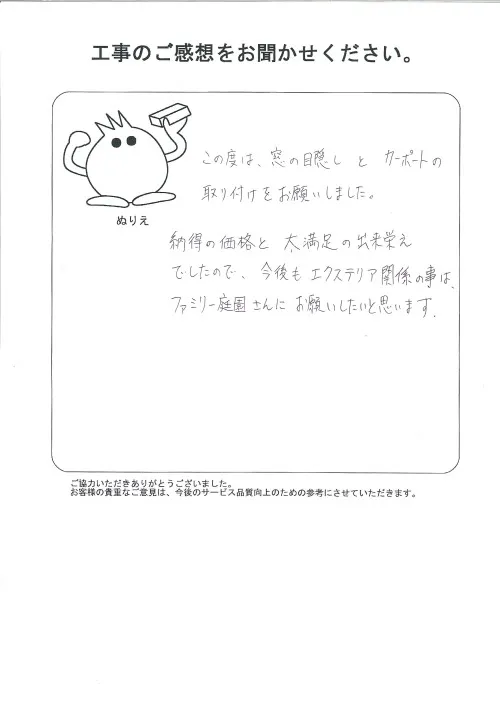 工事のご感想をお聞かせください。
ぬりえ
この度は、窓の目隠しと カーポートの
取り付けをお願いしました。
納得の価格と 大満足の出来栄え
でしたので、今後も エクステリア関係の事は、
ファミリー庭園さんに お願いしたいと思います.
ご協力いただきありがとうございました。
お客様の貴重なご意見は、今後のサービス品質向上のための参考にさせていただきます。